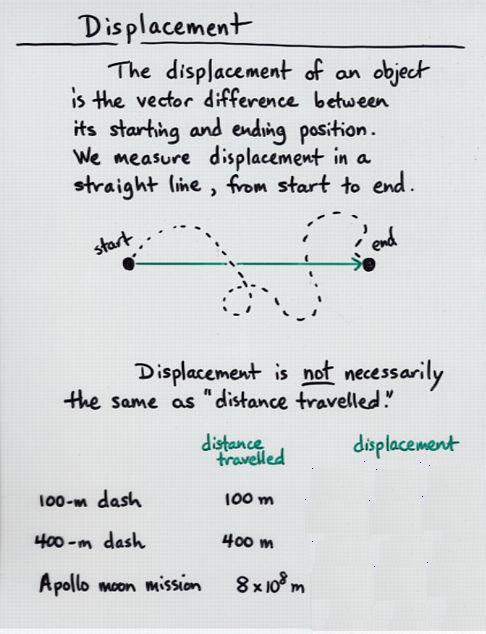 Displacement
The displacement of an object
is the vector difference between
its starting and ending position.
We measure displacement in a
straight line, from start to end.
start
end
Displacement is not necessarily
the same as "distance travelled."
distance
travelled
displacement
100-m dash 100 m
400-m dash 400 m
Apollo moon mission 8 x 10⁸ m